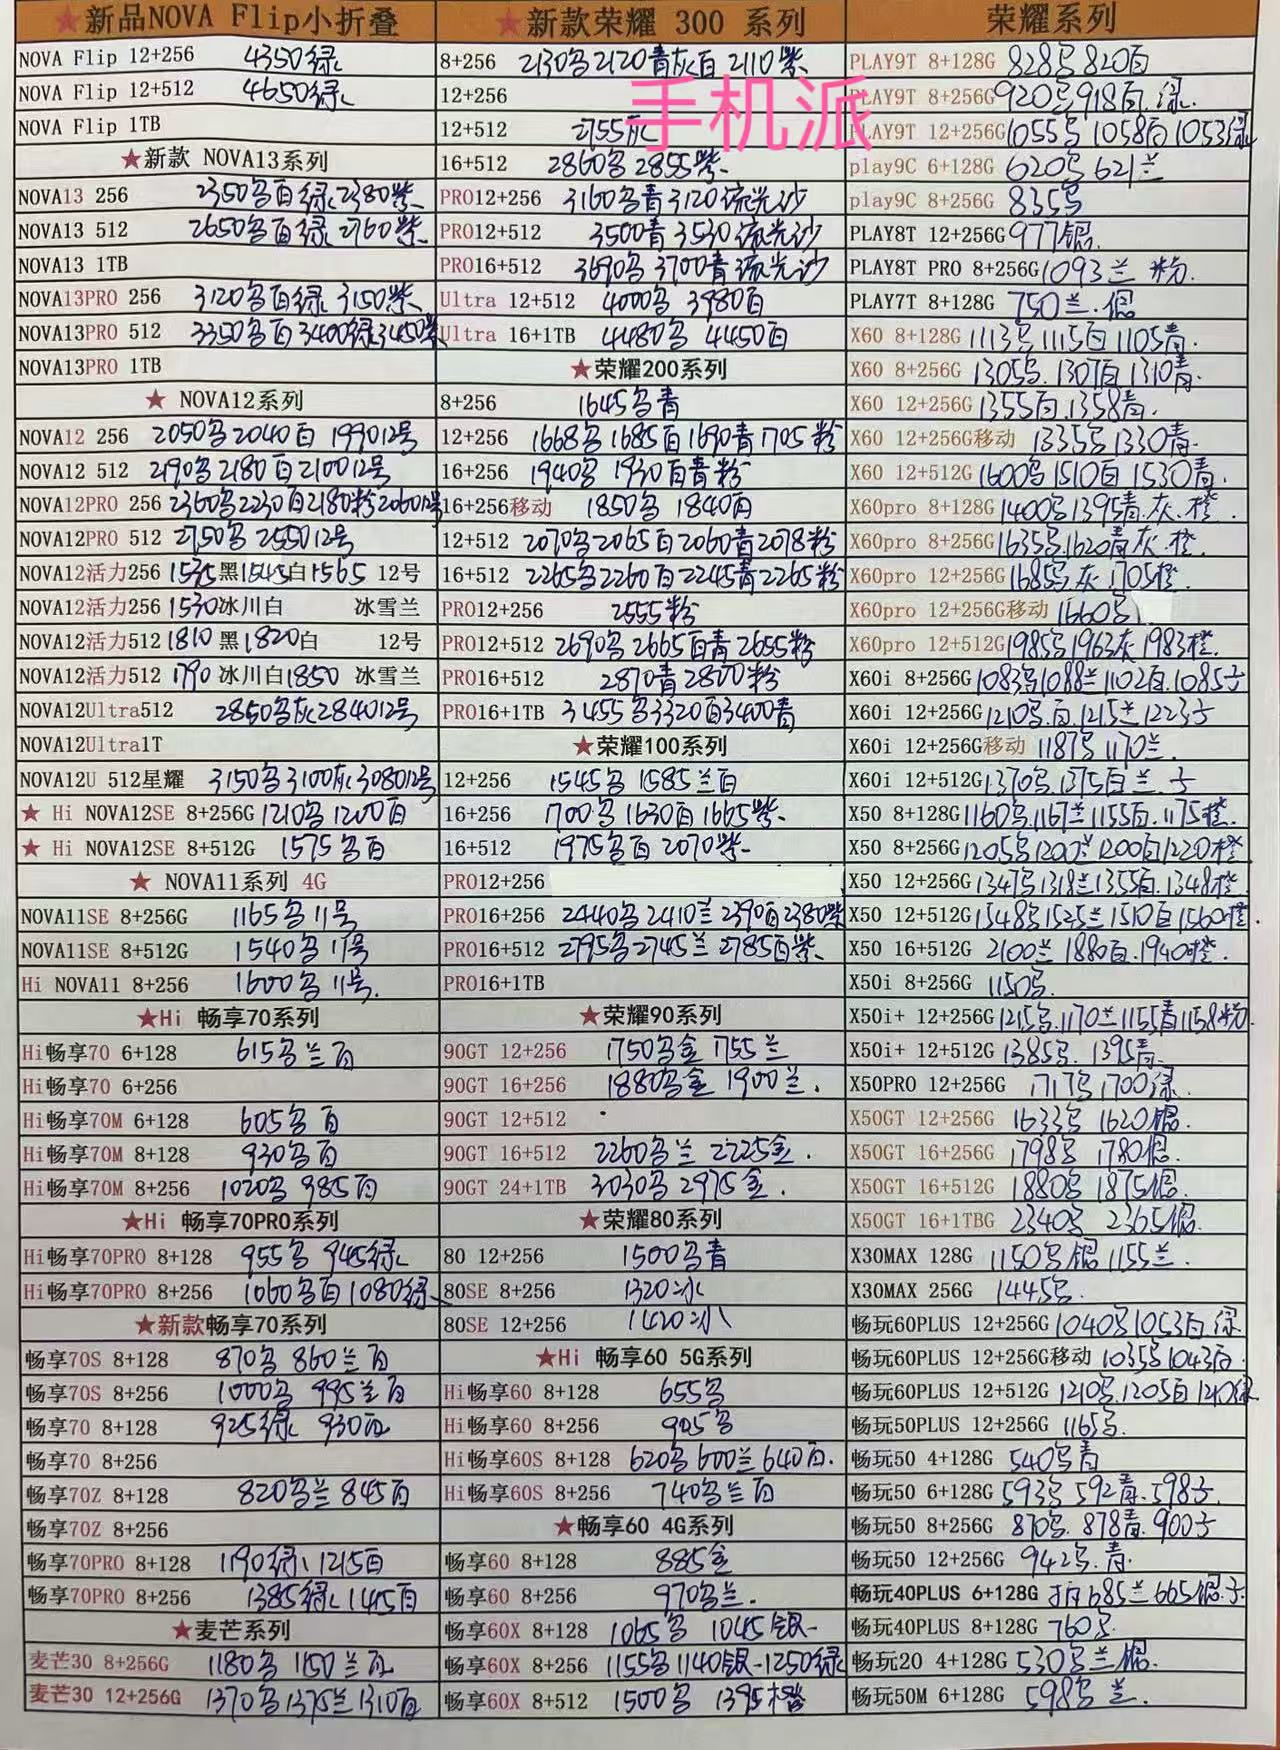 ★新品NOVA Flip小折叠
NOVA Flip 12+256 4350绿
NOVA Flip 12+512 4650绿
NOVA Flip 1TB
★新款 NOVA13系列
NOVA13 256 2350名百绿2380紫
NOVA13 512 2650名百绿2760紫
NOVA13 1TB
NOVA13PRO 256 3120名百绿 3150紫
NOVA13PRO 512 3350名百3400绿3450紫
NOVA13PRO 1TB
★ NOVA12系列
NOVA12 256 2050名2040百 199012号
NOVA12 512 2190名2180百210012号
NOVA12PRO 256 2360名2230百2180粉206012号
NOVA12PRO 512 2750名 255012号
NOVA12活力256 1535黑1545白1565 12号
NOVA12活力256 1530冰川白 冰雪兰
NOVA12活力512 1810黑1820白 12号
NOVA12活力512 1790冰川白1850 冰雪兰
NOVA12Ultra512 2850名灰284012号
NOVA12Ultra1T
NOVA12U 512星耀 3150名3100灰308012号
★ Hi NOVA12SE 8+256G 1210名1200百
★ Hi NOVA12SE 8+512G 1575名百
★ NOVA11系列 4G
NOVA11SE 8+256G 1165名11号
NOVA11SE 8+512G 1540名11号
Hi NOVA11 8+256 1600名11号.
★Hi 畅享70系列
Hi畅享70 6+128 615名兰百
Hi畅享70 6+256
Hi畅享70M 6+128 605名百
Hi畅享70M 8+128 930名百
Hi畅享70M 8+256 1020名985百
★Hi 畅享70PRO系列
Hi畅享70PRO 8+128 955名 945绿
Hi畅享70PRO 8+256 1060名百1080绿
★新款畅享70系列
畅享70S 8+128 870名860兰百
畅享70S 8+256 1000名995兰百
畅享70 8+128 925绿 930百
畅享70 8+256
畅享70Z 8+128 820名兰845百
畅享70Z 8+256
畅享70PRO 8+128 1190绿1215百
畅享70PRO 8+256 1385绿1415百
★麦芒系列
麦芒30 8+256G 1180名1150兰百
麦芒30 12+256G 1370名1375兰1310百
★新款荣耀 300 系列
8+256 2130名2120青灰百2110紫
12+256
12+512 2755灰
16+512 2860名2855紫
PRO12+256 3160名青3120流光沙
PRO12+512 3500青3530流光沙
PRO16+512 3690名3700青流光沙
Ultra 12+512 4000名 3980百
Ultra 16+1TB 4480名 4450百
★荣耀200系列
8+256 1645名青
12+256 1668名1685百1690青1705粉
16+256 1940名 1930百青粉
16+256移动 1850名 1840百
12+512 2070名2065百2060青2078粉
16+512 2265名2260百2245青2265粉
PRO12+256 2555粉
PRO12+512 2690名2665百青2655粉
PRO16+512 2870青2800粉
PRO16+1TB 3455名3320百3400青
★荣耀100系列
12+256 1545名 1585兰百
16+256 1700名1630百1665紫
16+512 1975名百2070紫
PRO12+256
PRO16+256 2440名2410兰2390百2380紫
PRO16+512 2795名2745兰2785百紫
PRO16+1TB
★荣耀90系列
90GT 12+256 1750名金1755兰
90GT 16+256 1880名金1900兰.
90GT 12+512
90GT 16+512 2260名兰2225金.
90GT 24+1TB 3030名2975金.
★荣耀80系列
80 12+256 1500名青
80SE 8+256 1320冰
80SE 12+256 1420冰
★Hi 畅享60 5G系列
Hi畅享60 8+128 655名
Hi畅享60 8+256 945名
Hi畅享60S 8+128 620名600兰640百.
Hi畅享60S 8+256 740名兰百
★畅享60 4G系列
畅享60 8+128 885金
畅享60 8+256 970名兰.
畅享60X 8+128 1065名 1045银
畅享60X 8+256 1155名1140银1250绿
畅享60X 8+512 1500名 1395橙
荣耀系列
PLAY9T 8+128G 828名820百
PLAY9T 8+256G 920名918百.绿.
PLAY9T 12+256G 1055名1058百1053绿
play9C 6+128G 620名621兰
play9C 8+256G 835名
PLAY8T 12+256G 977银.
PLAY8T PRO 8+256G 1093兰 粉.
PLAY7T 8+128G 750兰.银
X60 8+128G 1113名1115百1105青.
X60 8+256G 1305名.1307百1310青.
X60 12+256G 1355百.1358青.
X60 12+256G移动 1335名1330青.
X60 12+512G 1600名1510百1530青.
X60pro 8+128G 1400名1395青.灰.橙.
X60pro 8+256G 1635名.1620青灰.橙.
X60pro 12+256G 1685名灰1705橙.
X60pro 12+256G移动 1660名
X60pro 12+512G 1985名1963灰1983橙.
X60i 8+256G 1083名1088兰1102百.1085子
X60i 12+256G 1210名.百.1215兰1223子
X60i 12+256G移动 1187名1170兰.
X60i 12+512G 1370名.1375百兰.子
X50 8+128G 1160名.1167兰1155百.1175橙.
X50 8+256G 1205名1200兰1200百1220橙
X50 12+256G 1347名1318兰1355百.1348橙
X50 12+512G 1548名1525兰1510百1560橙.
X50 16+512G 2100兰1880百.1940橙.
X50i 8+256G 1150名.
X50i+ 12+256G 1215名.1170兰1155青1158粉.
X50i+ 12+512G 1385名. 1395青.
X50PRO 12+256G 1717名1700绿.
X50GT 12+256G 1633名 1620银.
X50GT 16+256G 1798名 1780银.
X50GT 16+512G 1880名 1875银.
X50GT 16+1TBG 2340名 2365银.
X30MAX 128G 1150名银1155兰.
X30MAX 256G 1445名.
畅玩60PLUS 12+256G 1040名1053百.绿
畅玩60PLUS 12+256G移动 1035名1043百.
畅玩60PLUS 12+512G 1210名.1205百1210绿
畅玩50PLUS 12+256G 1165名.
畅玩50 4+128G 540名青
畅玩50 6+128G 593名592青.598子.
畅玩50 8+256G 870名.878青.900子
畅玩50 12+256G 942名.青.
畅玩40PLUS 6+128G 685兰665银.子.
畅玩40PLUS 8+128G 760名.
畅玩20 4+128G 530名兰银.
畅玩50M 6+128G 598名兰.
手机派